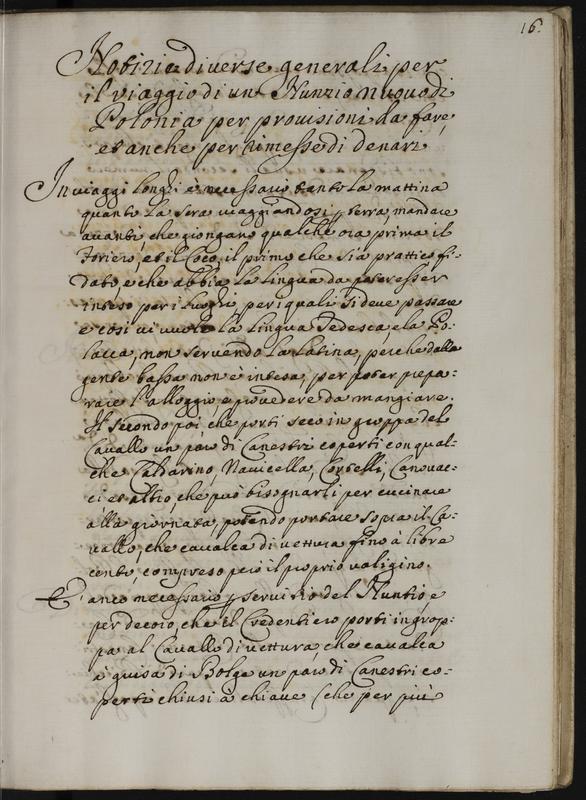 16.
Notizie diverse generali per
il viaggio di un Nunzio nuovo di
Polonia per provisioni da fare,
et anche per rimesse di denari
In viaggi longhi è necessario tanto la mattina
quanto la sera viaggiandosi p terra, mandare
avanti, che giongano qualche ora prima il
Foriero, et il Coco, il primo che sia prattico fi-
dato, e che abbia la lingua da poter esser
inteso per i luoghi, per i quali si deve passare
e così vi vuole la lingua Tedesca, e la Po-
lacca, non servendo la Latina, perche dalla
gente bassa non è intesa, per poter prepa-
rare l'alloggio, e provedere da mangiare.
Il secondo poi che porti seco in groppa del
Cavallo un paro di Canestri coperti con qual-
che Caldarino, Navicella, Cortelli, Canovac-
ci et altro, che può bisognarli per cucinare
alla giornata, potendo portare sopra il Ca-
vallo, che cavalca di vettura fino à libre
cento, compreso però il proprio valigino.
E anco necessario p servitio del Nuntio, e
per decoro, che il Credentiero porti in grop-
pa al Cavallo di vettura, che cavalca
à guisa di Bolge un paro di Canestri co-
perti chiusi à chiave (che per più